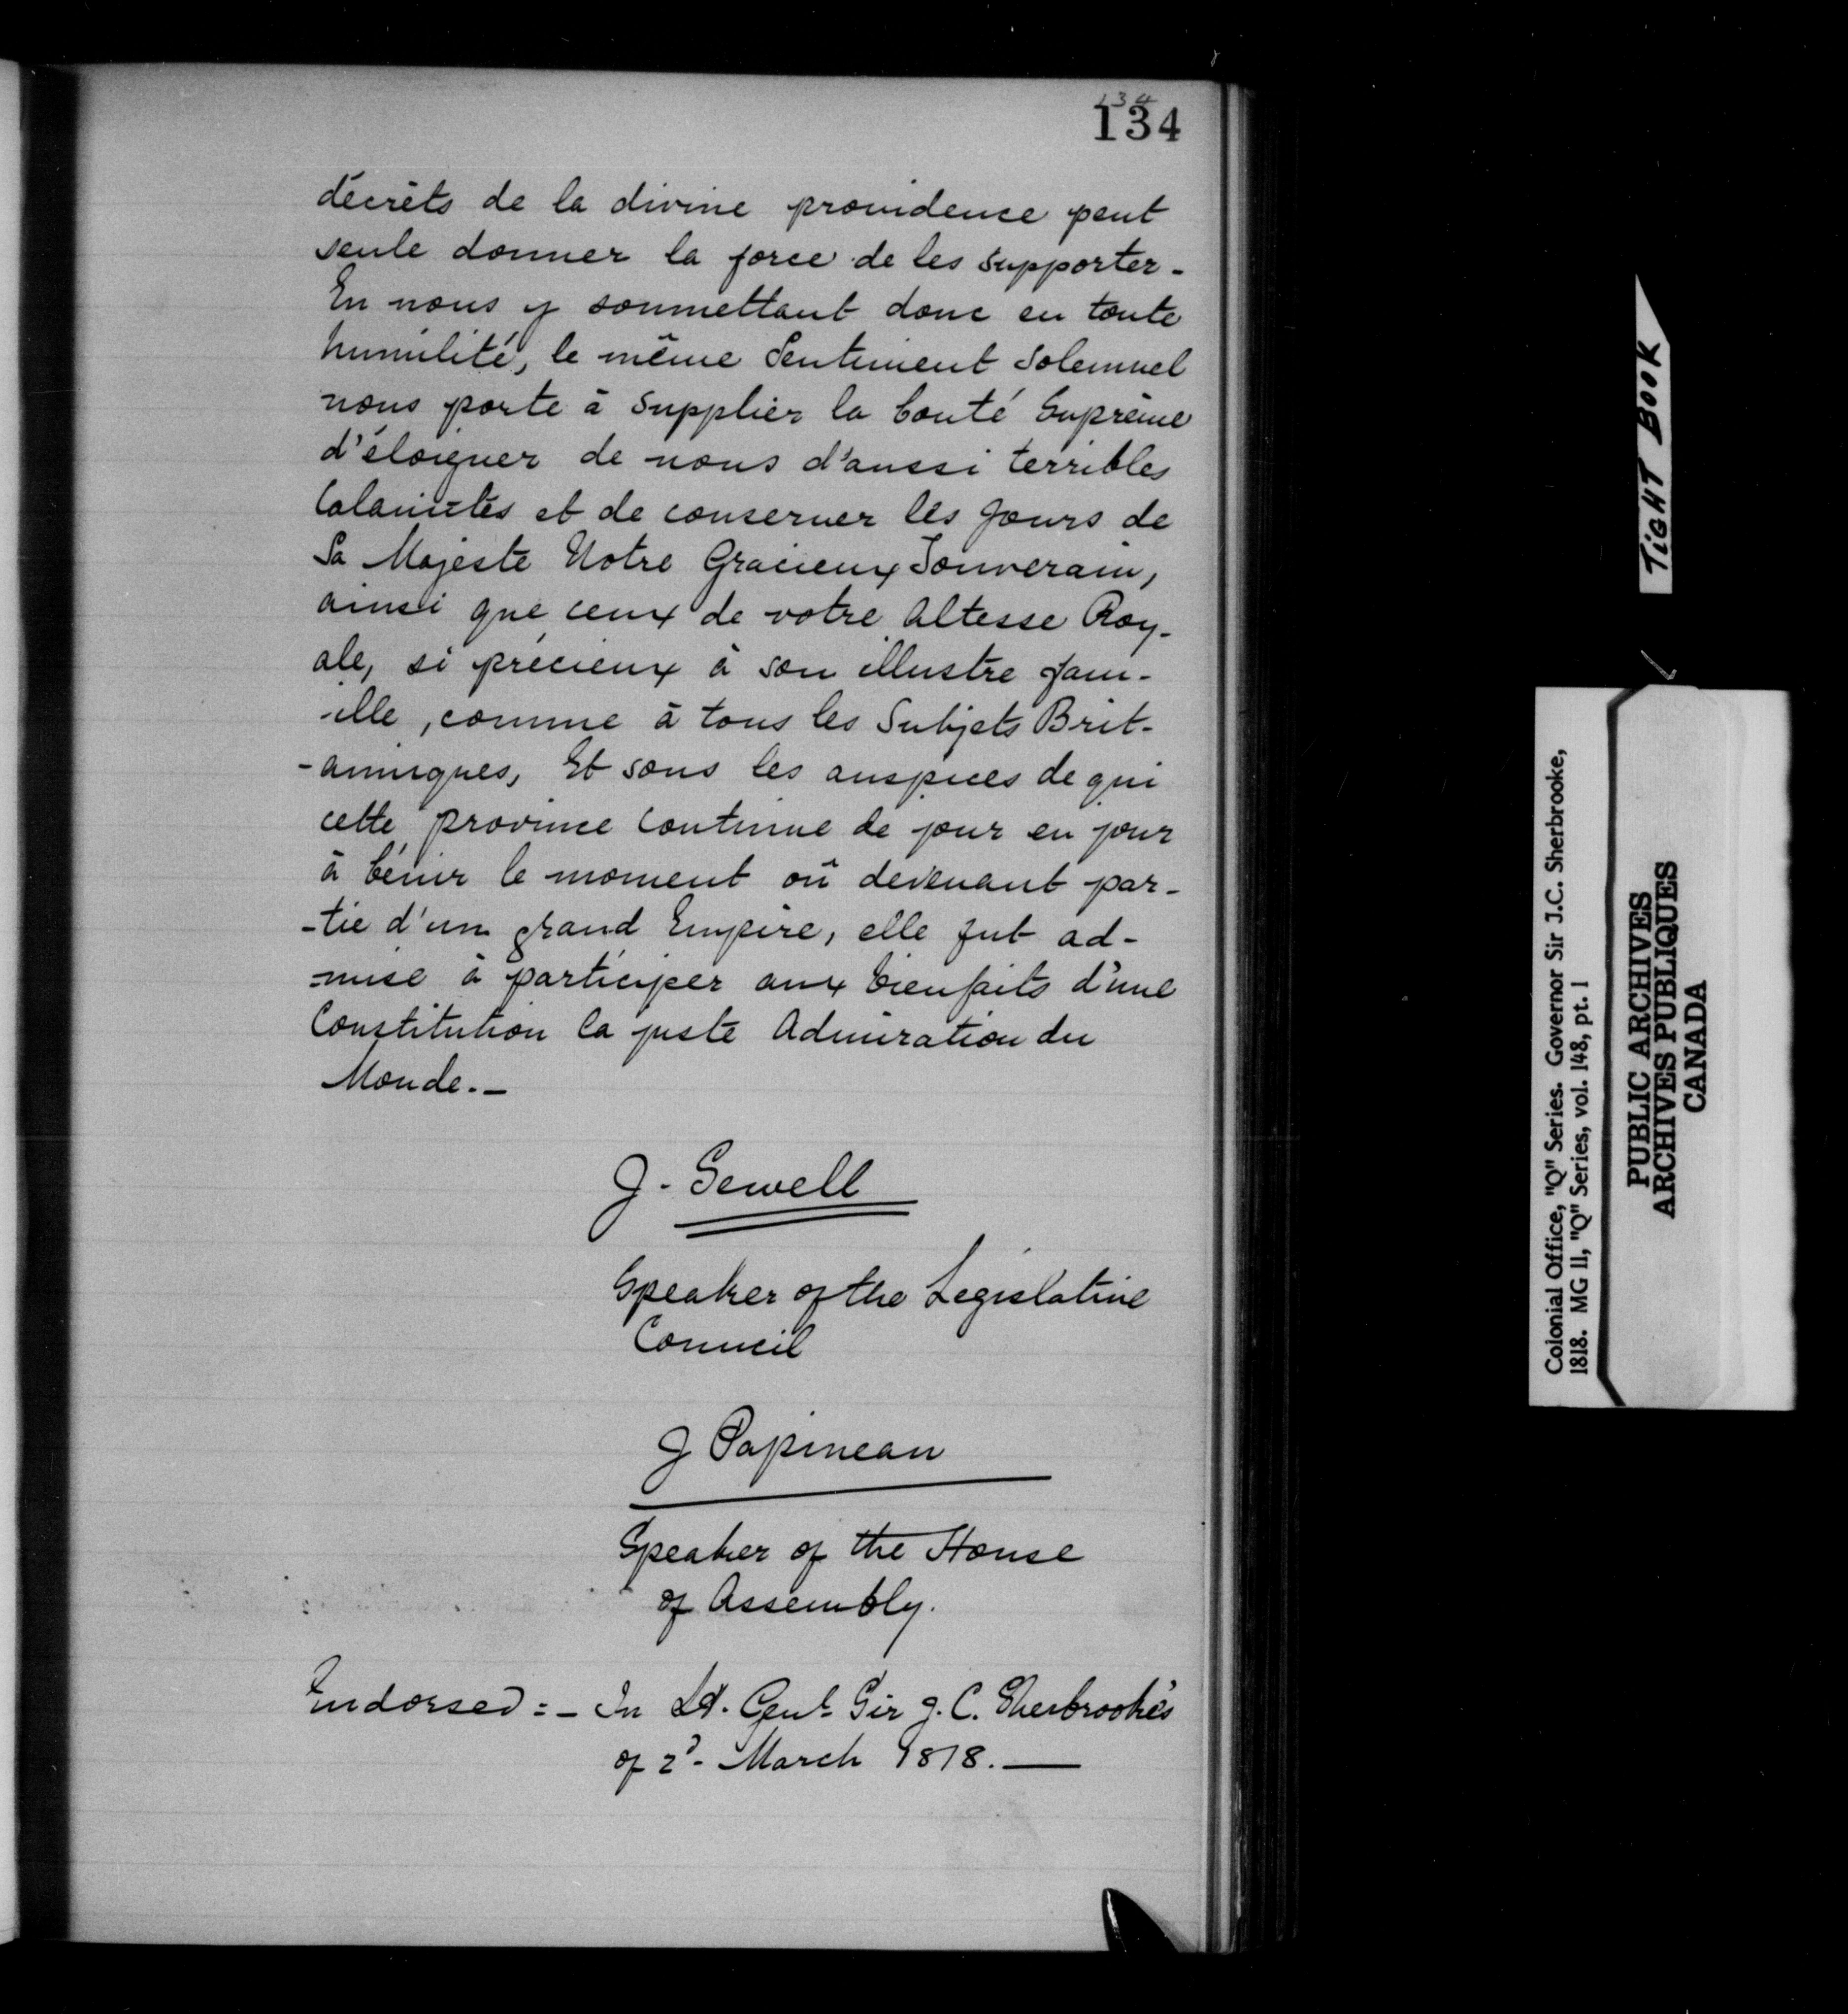 134
134
décrèts de la divine providence peut
seule donner la force de les supporter -
En nous y soumettant donc en toute
humilité, le même Sentiment Solemnel
nous porte à supplier la bonté Suprême
d'éloigner de nous d'aussi terribles
Calamités et de conserver les Jours de
Sa Majesté Notre Gracieux Souverain,
ainsi que ceux de votre Altesse Roy-
ale, si précieux à son illustre fam-
-ille, comme à tous les Subjets Brit-
-anniques, Et sous les auspices de qui
cette province Continue de jour en jour
à bénir le moment où devenant par-
-tie d'un grand Empire, elle fut ad-
-mise à participer aux bienfaits d'une
Constitution la juste Admiration du
Monde. -
J. Sewell
Speaker of the Legislative
Council
J Papineau
Speaker of the House
of Assembly.
Endorsed : - In Lt. Genl. Sir J. C. Sherbrooke's
of 2d. March 1818. —
TIGHT BOOK
Colonial Office, "Q" Series. Governor Sir J.C. Sherbrooke,
1818. MG 11, "Q" Series, vol. 148, pt. 1
PUBLIC ARCHIVES
ARCHIVES PUBLIQUES
CANADA